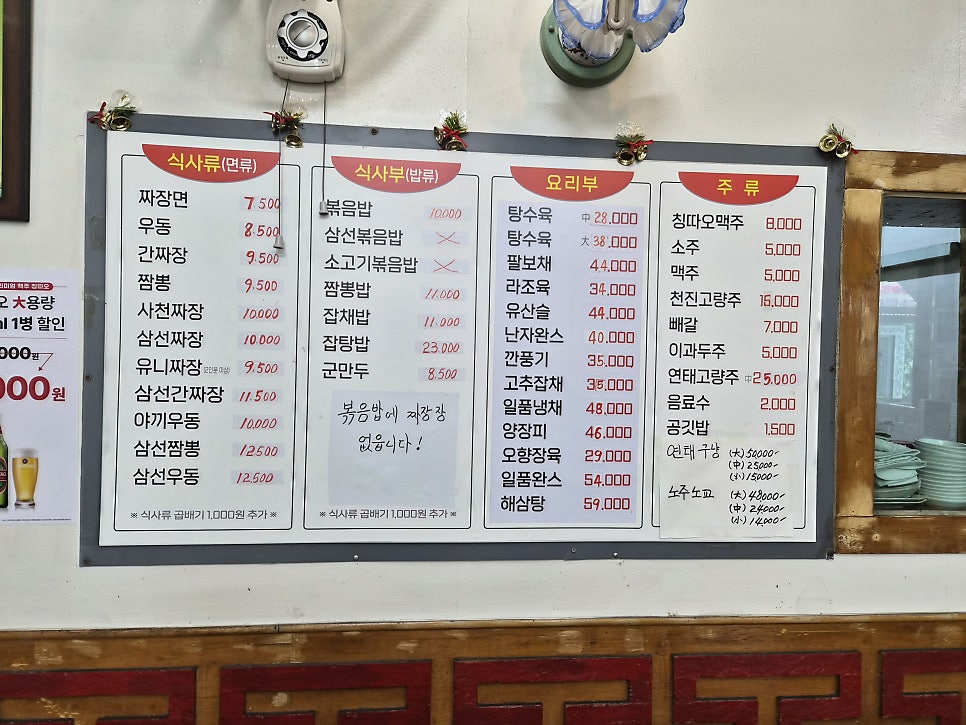 리미엄 맥주 칭따오
오 大용량
1병 할인
000원
000원
식사류(면류)
짜장면 7,500
우동 8,500
간짜장 9,500
짬뽕 9,500
사천짜장 10,000
삼선짜장 10,000
유니짜장(2인분 이상) 9,500
삼선간짜장 11,500
야끼우동 10,000
삼선짬뽕 12,500
삼선우동 12,500
※ 식사류 곱배기 1,000원 추가 ※
식사부(밥류)
볶음밥 10,000
삼선볶음밥
소고기볶음밥
짬뽕밥 11,000
잡채밥 11,000
잡탕밥 23,000
군만두 8,500
볶음밥에 짜장장
없읍니다!
※ 식사류 곱배기 1,000원 추가 ※
요리부
탕수육 中 28,000
탕수육 大 38,000
팔보채 44,000
라조육 34,000
유산슬 44,000
난자완스 40,000
깐풍기 35,000
고추잡채 35,000
일품냉채 48,000
양장피 46,000
오향장육 29,000
일품완스 54,000
해삼탕 59,000
주류
칭따오맥주 8,000
소주 5,000
맥주 5,000
천진고량주 15,000
빼갈 7,000
이과두주 5,000
연태고량주 中 25,000
음료수 2,000
공깃밥 1,500
연태구냥 (大) 50000-
(中) 25000-
(小) 15000-
노주노교 (大) 48000-
(中) 24000-
(小) 14000-